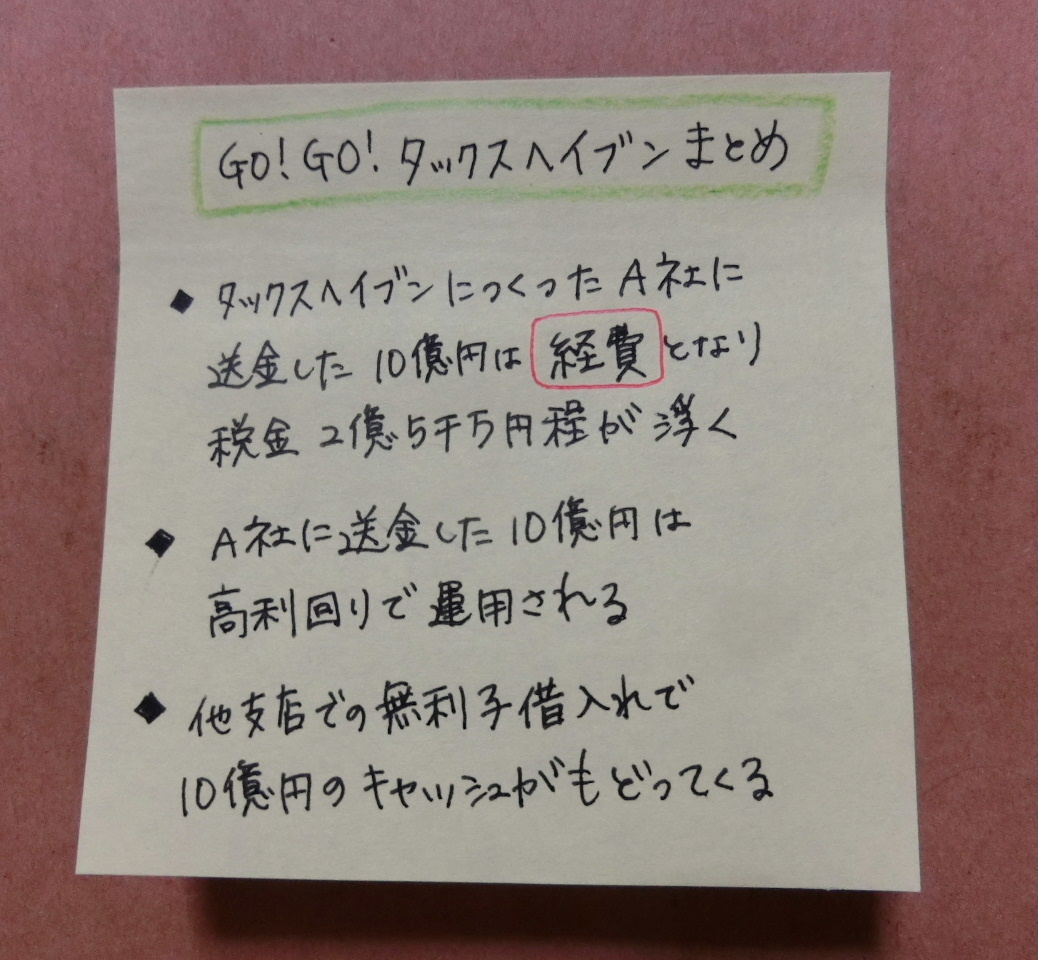 GO!GO!タックスヘイブンまとめ
◆ タックスヘイブンにつくったA社に
送金した10億円は経費となり
税金2億5千万円程が浮く
◆ A社に送金した10億円は
高利回りで運用される
◆ 他支店での無利子借入れで
10億円のキャッシュがもどってくる